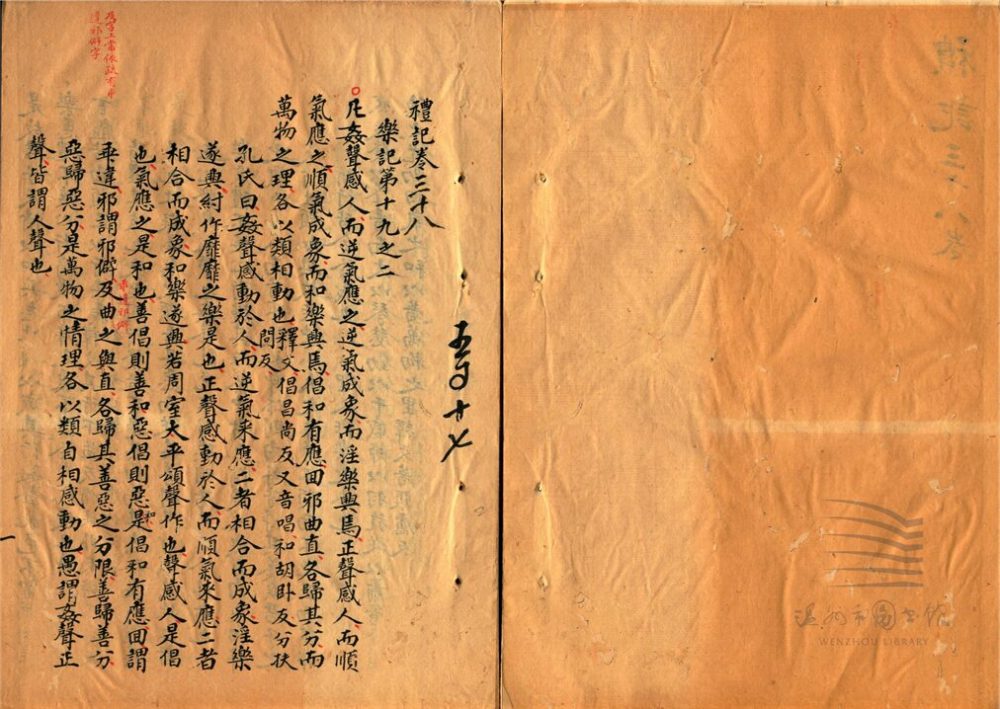 禮記卷三十八
樂記第十九之二
凡姦聲感人而逆氣應之逆氣成象而淫樂興焉正聲感人而順
氣應之順氣成象而和樂興焉倡和有應回邪曲直各歸其分而
萬物之理各以類相動也釋文倡昌尚反又音唱和胡卧反分扶
問反
孔氏曰姦聲感動於人而逆氣來應二者相合而成象淫樂
遂興紂作靡靡之樂是也正聲感動於人而順氣來應二者
相合而成象和樂遂興若周室大平頌聲作也聲感人是倡
也氣應之是和也善倡則善和惡倡則惡和是倡和有應回謂
乖違邪謂邪僻及曲之與直各歸其善惡之分限善歸善分
惡歸惡分是萬物之情理各以類自相感動也愚謂姦聲正
聲皆謂人聲也
五百十七
禮記三八卷
温州市圖書館
WENZHOU LIBRARY